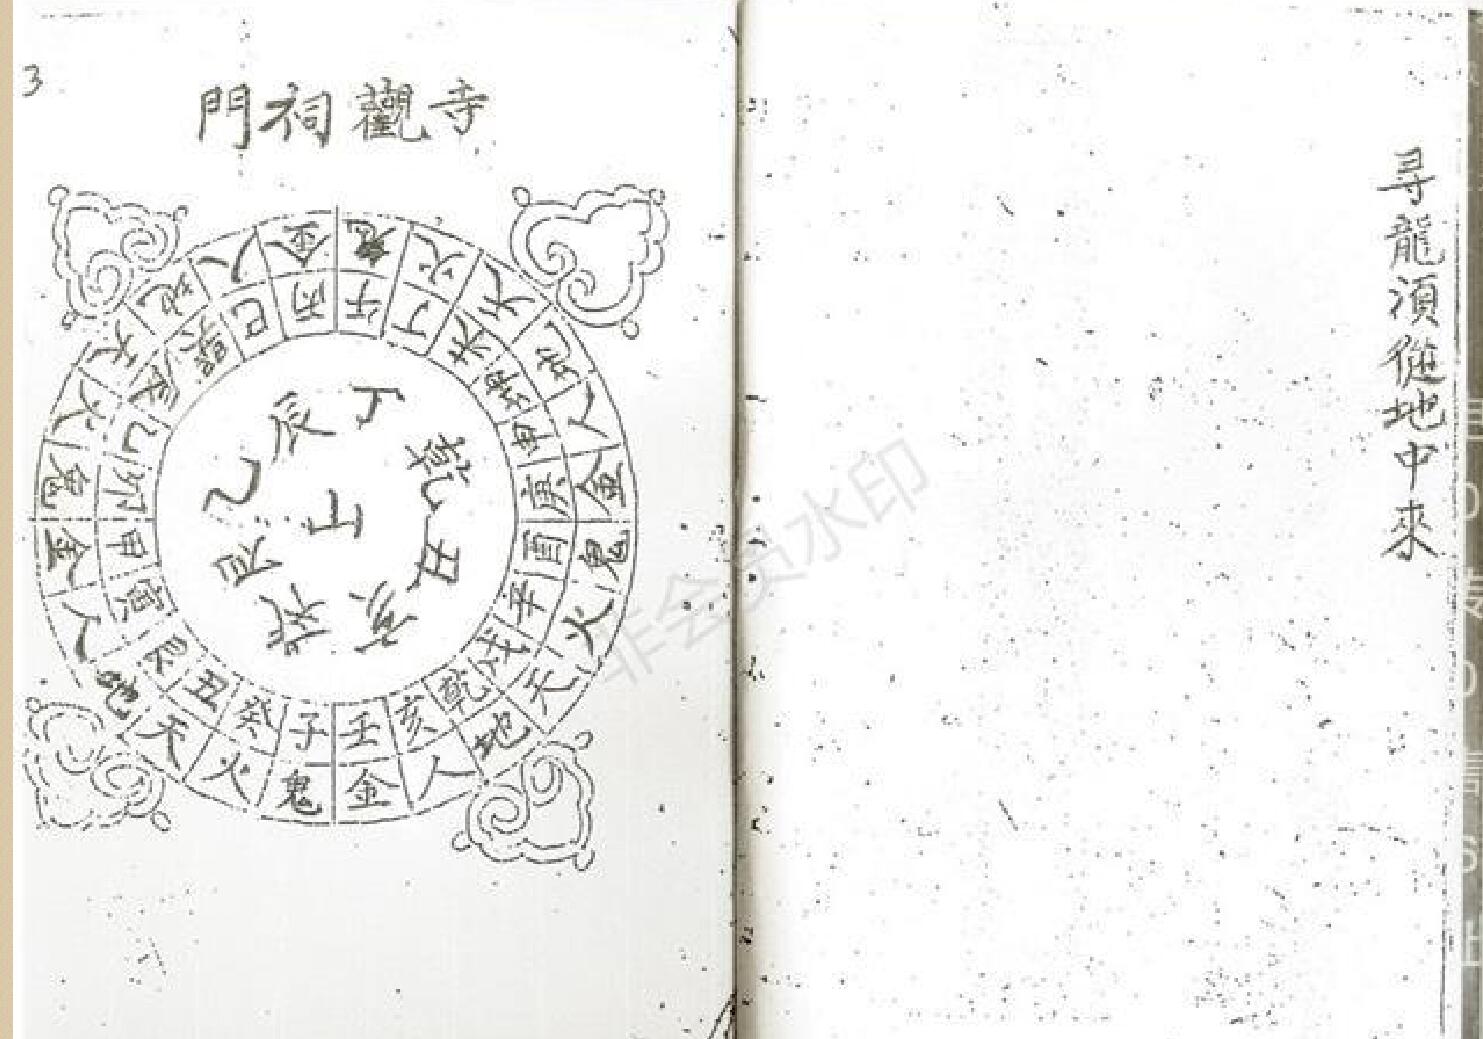 尋龍湏從地中來
寺觀祠門
3
鬼火天地人金鬼火天地人金鬼火天地人金鬼火天地人金
午丁未坤申庚酉辛戌乾亥壬子癸丑艮寅甲卯乙辰巽巳丙
辰
乙
丑
亥
非会员水印